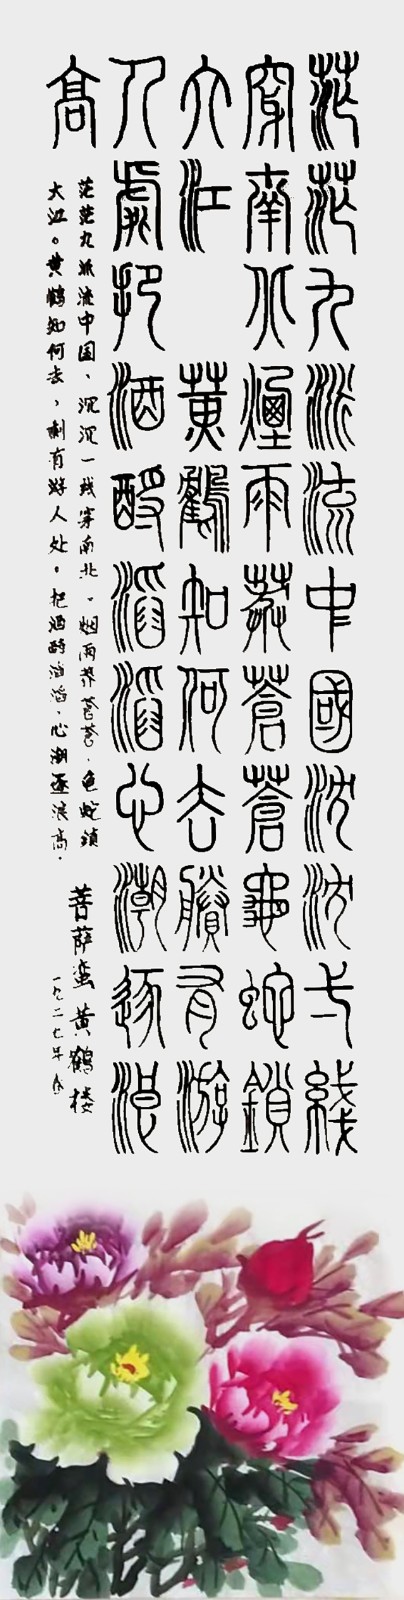 茫茫九派流中國沈沈弌綫
穿南北煙雨莽蒼蒼龜蛇鎖
大江 黄鶴知何去賸有游
人處把酒酹滔滔心潮逐浪
高
茫茫九派流中国、沉沉一线穿南北。烟雨莽苍苍、龟蛇锁
大江。黄鹤知何去,剩有游人处。把酒酹滔滔、心潮逐浪高.
菩萨蛮 黄鹤楼
一九二七年春